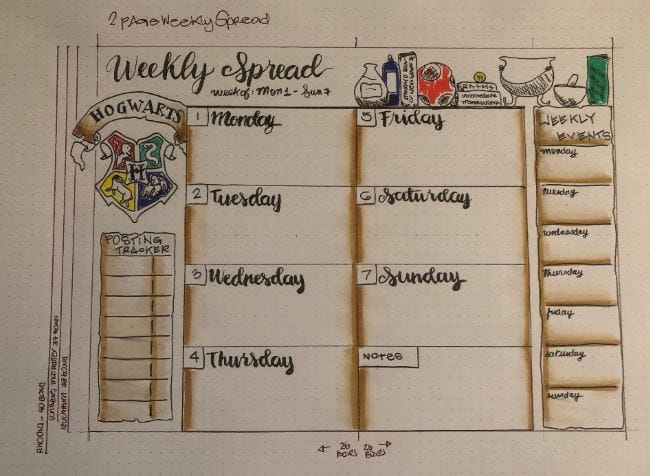 2 page Weekly Spread
Weekly Spread
week of: Mon 1 - Sun 7
HOGWARTS
H
1 Monday
2 Tuesday
3 Wednesday
4 Thursday
5 Friday
6 Saturday
7 Sunday
Notes
POSTING
TRACKER
WEEKLY
EVENTS
monday
tuesday
wednesday
thursday
friday
saturday
sunday
26 BOXES
26 BOXES